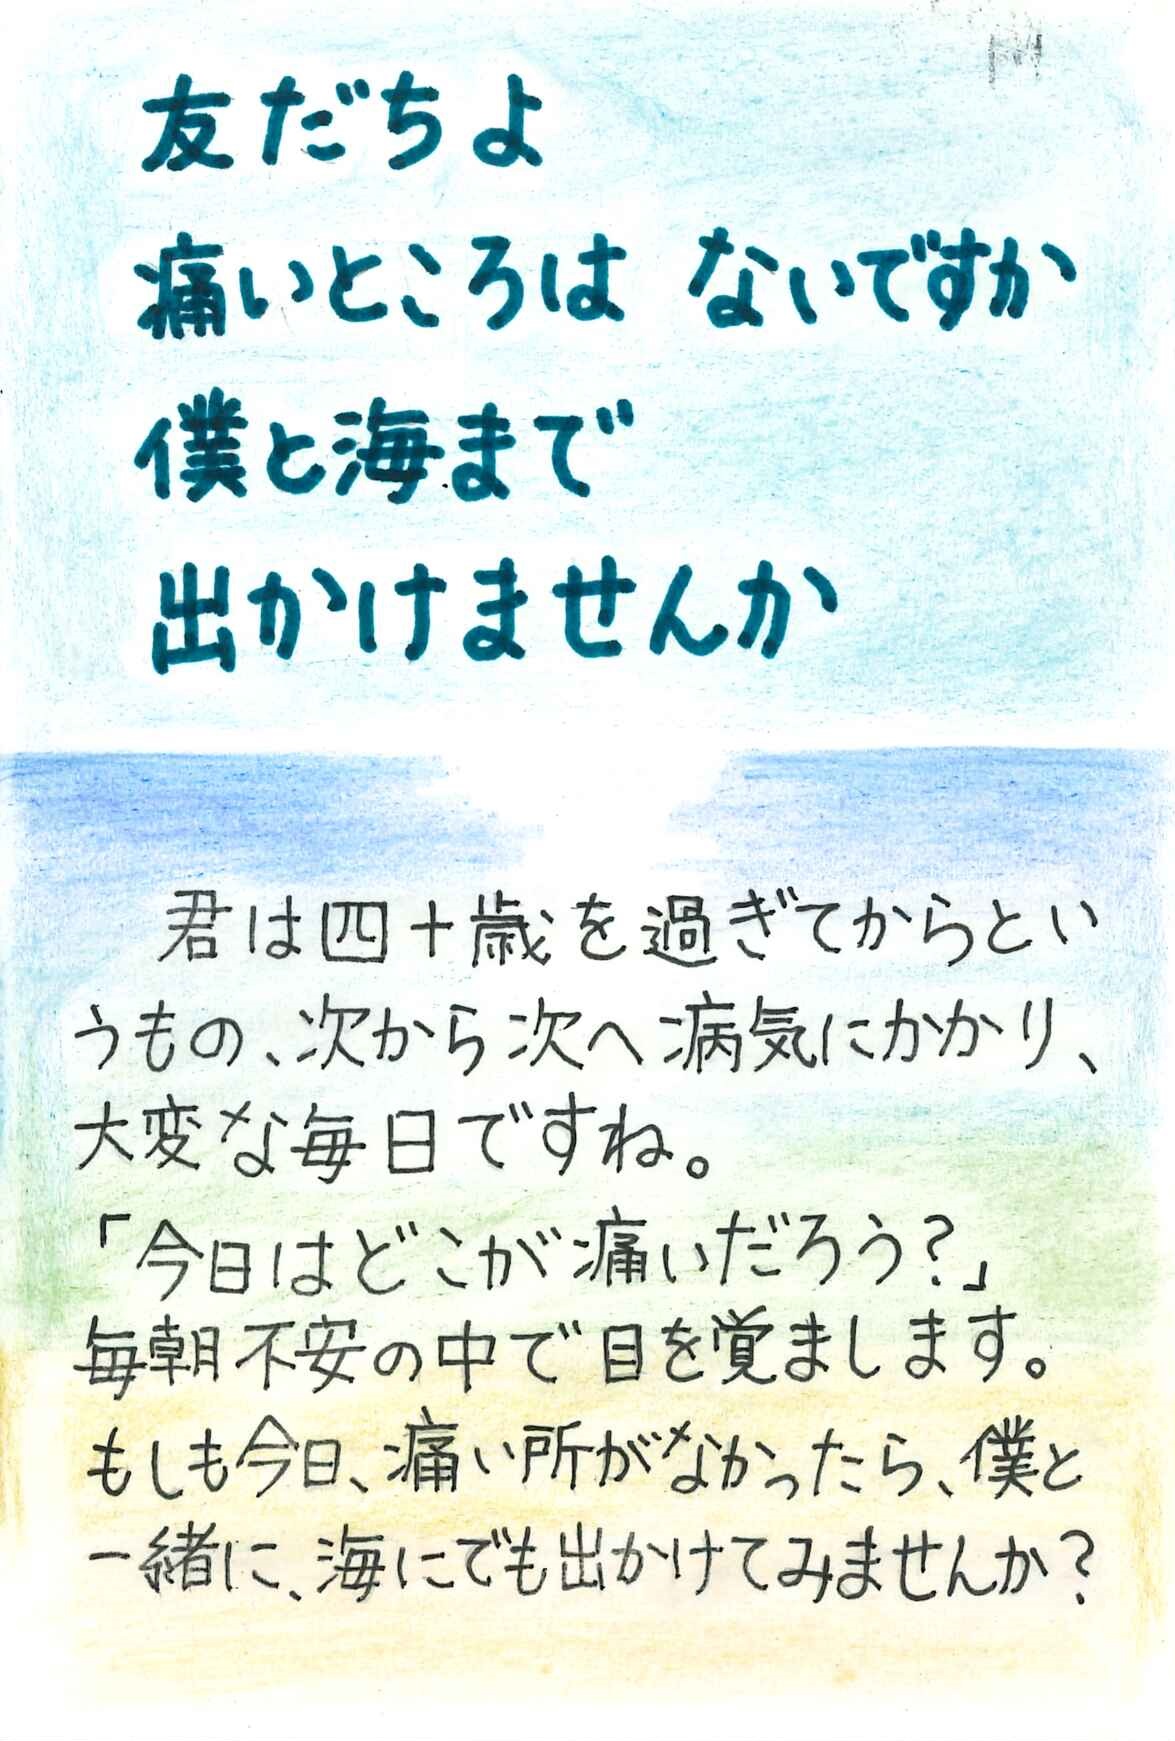 友だちよ
痛いところは ないですか
僕と海まで
出かけませんか
君は四十歳を過ぎてからとい
うもの、次から次へ病気にかかり、
大変な毎日ですね。
「今日はどこが痛いだろう？」
毎朝不安の中で目を覚まします。
もしも今日、痛い所がなかったら、僕と
一緒に、海にでも出かけてみませんか？